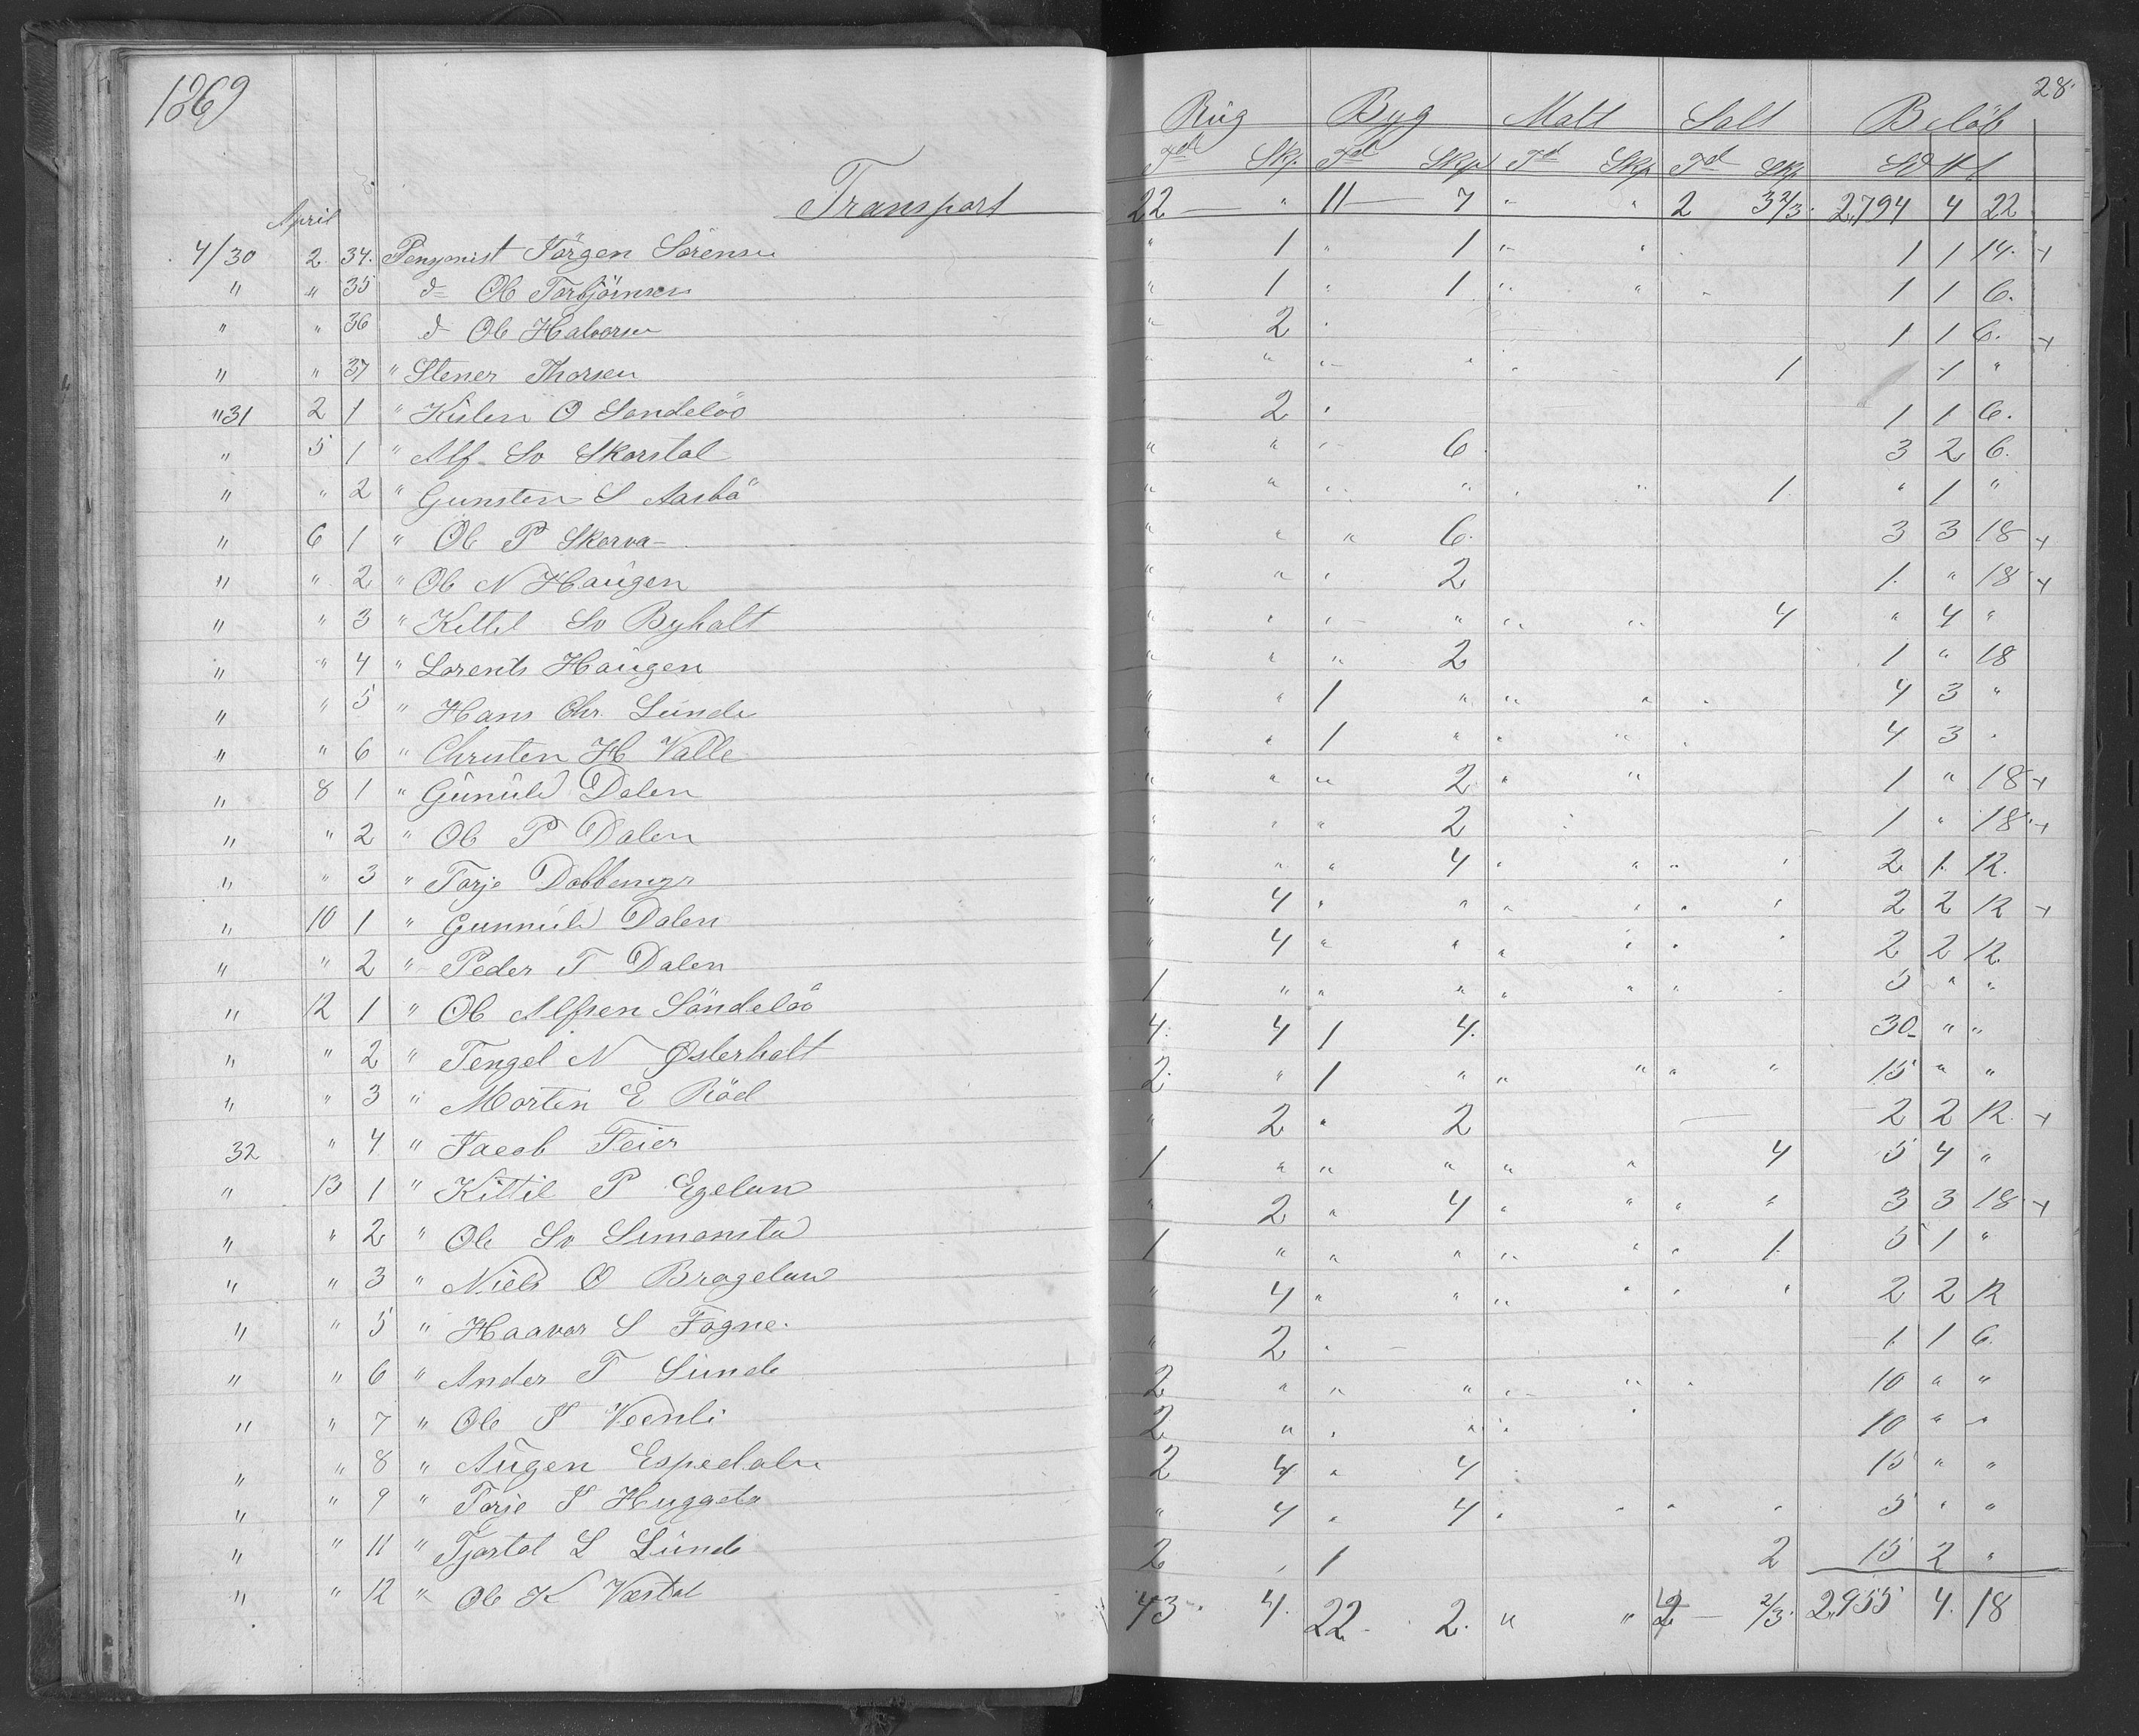 1869
28.
Rüg Byg Malt Salt Beløb
Td Skp. Td Skp Td Skp Td Skp
April
Transport 22 " 11 7 " " 2 3 2/3 2,794 4 22
4/30 2 34. Pensjonist Jörgen Sörensen " 1 " 1 " " 1 1 14. +
" " 35 d= Ole Torbjörnsen " 1 " 1 " " 1 1 6.
" " 36 d= Ole Halvorsen " 2 " 1 1 6. +
" " 37 " Stener Thorsen " " " " " 1 1 "
" 31 2 1 " O Sondeløv 2 " 1 1 6.
" 5 1 " Alf Sv Skorstøl " " " 6 3 2 6.
" " 2 " Gunsten S Aasbö " " " " " " 1 " 1 "
" 6 1 " Ole P Skorva " " " 6. 3 3 18 +
" " 2 " Ole N Haugen " " " 2 1 " 18 +
" " 3 " Kittil Sv Byholt " " " " " " 4 " 4 "
" " 4 " Lorents Haugen " " " 2 1 " 18
" " 5 " Hans Chr. Lunde " " 1 " " " 4 3 "
" " 6 " Christen H Valle " " 1 " " " 4 3 "
" 8 1 " Gunuld Dalen " " " 2 " " 1 " 18 +
" " 2 " Ole P Dalen " " " 2 1 " 18 +
" " 3 " Torje Dobbemyr " " " 4 " " " " 2 1 12.
" 10 1 " Gunnuld Dalen " 4 " " " " " " 2 2 12 +
" " 2 " Peder T Dalen " 4 " " " " " " 2 2 12
" 12 1 " Ole Alfsen Söndeløv 1 " " " " " " " 5 " "
" " 2 " Tengel N Østerholt 4. 4 1 4. 30 " "
" " 3 " Morten E Röd 2. " 1 " " " " " 15 " "
32 " 4 " Jacob Feier " 2 " 2 2 2 12. +
" 13 1 " Kittil P Egelan 1 " " " " " 4 5 4 "
" " 2 " Ole Sv Simonstø " 2 " 4 " " " " 3 3 18 +
" " 3 " Niels O Brogelan 1 " " " " " " 1 5 1 "
" " 5 " Haavor S Fogne. " 4 " " " " " " 2 2 12
" " 6 " Ander T Lunde " 2 " 1 1 6
" " 7 " Ole J Veenli 2 " " " " " 10 " "
" " 8 " Augen Espedalen 2 " " " " " 10 " "
" " 9 " Torje J Huggeto 2 4 " 4 15 " "
" " 11 " Tjøstol L Lunde " 4 " 4 " " " " 5 " "
" " 12 " Ole K Væstøl 2 " 1 2 15 2 "
43 4. 22 2. " " 2 2/3 2,955 4. 18